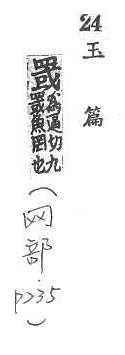 24 玉篇
罭 為逼切九
罭魚罔也
(网部.p235)